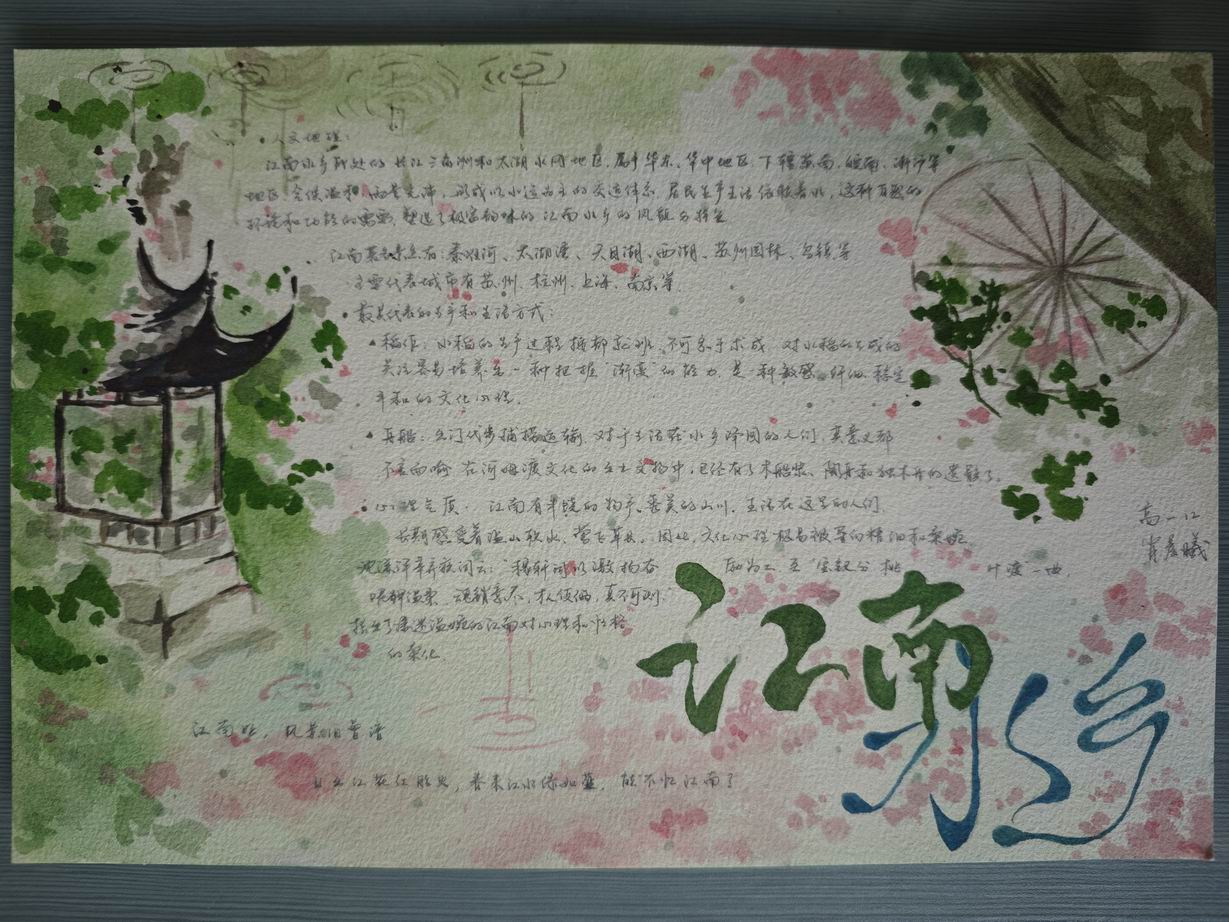 •人文地理：
江南水乡所处的长江三角洲和太湖水网地区，属于华东、华中地区，下辖苏南，皖南，浙沪等
地区，气候温和，雨量充沛，形成以水运为主的交通体系，居民生产生活依赖着水，这种自然的
环境和功能的需要，塑造了极富韵味的江南水乡的风貌与特色
江南著名景点有：秦淮河、太湖、天目湖、西湖、苏州园林、乌镇等
主要代表城市有苏州、杭州、上海、南京等
•最具代表的生产和生活方式：
▲稻作：水稻的生产过程按部就班，不可急于求成，对水稻的生成的
关注容易培养出一种把握“渐度”的能力，是一种敏感、纤细、稳定
平和的文化心理。
▲舟船：出门代步捕捞运输，对于生活在水乡泽国的人们，其意义都
不言而喻，在河姆渡文化的出土文物中，已经有了木船桨、陶舟和独木舟的遗骸了。
•心理气质：江南有丰饶的物产、秀美的山川，生活在这里的人们，
长期感受着温山软水，莺飞草长，因此，文化心理极易被导向精细和柔婉
况周颐评辛弃疾词云：“稼轩
叶渡一曲
昵狎温柔，魂销意尽，才人伎俩，真不可测”
指出了江南对心理和性格
的柔化
江南好，风景旧曾谙
日出江花红胜火，春来江水绿如蓝，能不忆江南？
高一12
江南
水乡